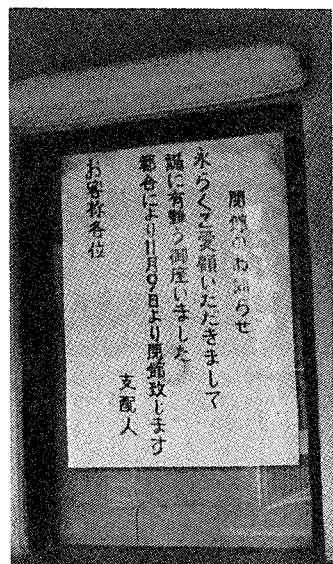 閉館のお知らせ
永らくご愛顧いただきまして
誠に有難う御座いました
都合により11月9日より閉館致します
支配人
お客様各位